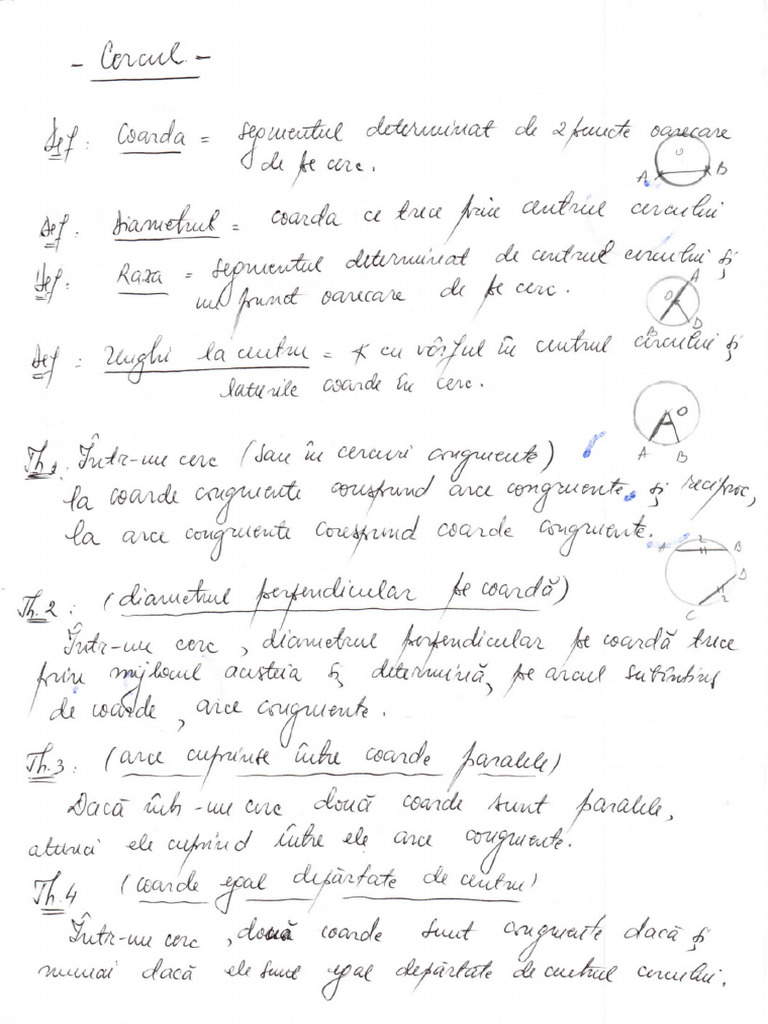 - Cercul -
Def: Coarda = segmentul determinat de 2 puncte oarecare
de pe cerc.
O
A B
Def: Diametrul = coarda ce trece prin centrul cercului
Def: Raza = segmentul determinat de centrul cercului și
un punct oarecare de pe cerc.
A
O
B D
Def: Unghi la centru = ∢ cu vârful în centrul cercului și
laturile coarde în cerc.
O
A B
Th1. Într-un cerc (sau în cercuri congruente)
la coarde congruente corespund arce congruente și reciproc,
la arce congruente corespund coarde congruente.
A 2 B
D
2
C
Th.2: (diametrul perpendicular pe coardă)
Într-un cerc, diametrul perpendicular pe coardă trece
prin mijlocul acesteia și determină, pe arcul subîntins
de coarde, arce congruente.
Th.3: (arce cuprinse între coarde paralele)
Dacă într-un cerc două coarde sunt paralele,
atunci ele cuprind între ele arce congruente.
Th.4 (coarde egal depărtate de centru)
Într-un cerc, două coarde sunt congruente dacă și
numai dacă ele sunt egal depărtate de centrul cercului.